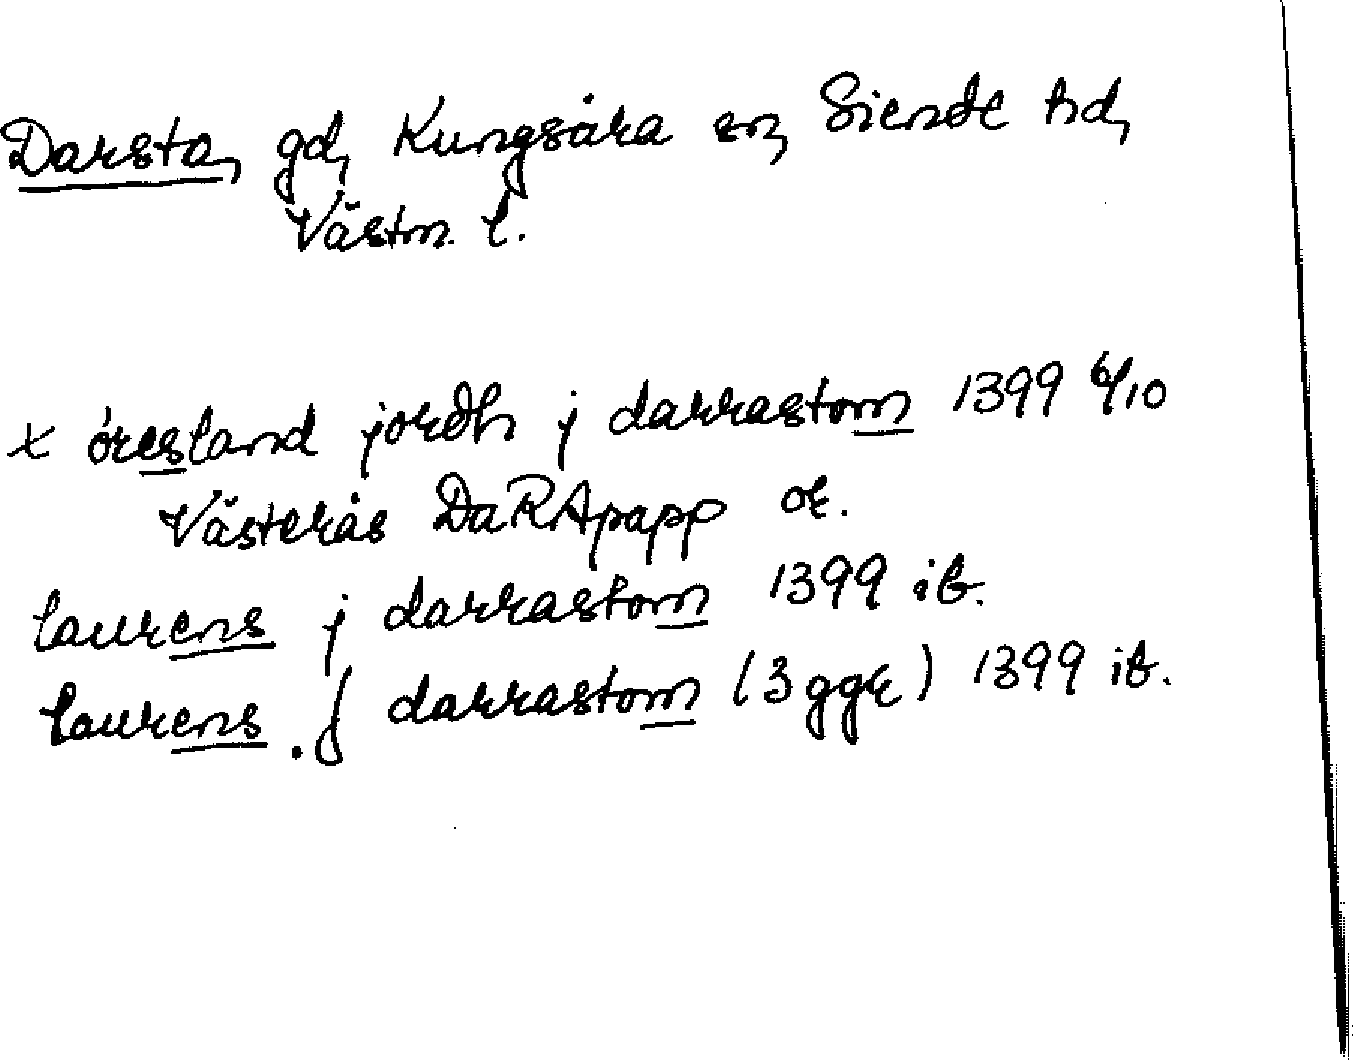 Darsta, gd, Kungsåra sn, Siende hd,
Västm. l.
x öresland jordh j darrastom 1399 6/10
Västerås DaRApapp or.
laurens j darrastom 1399 ib.
laurens . J darrastom (3 ggr) 1399 ib.